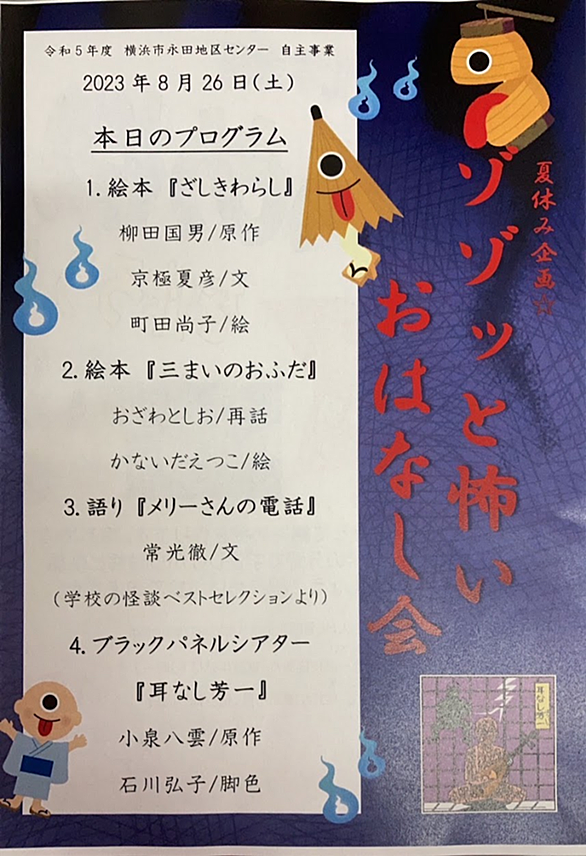 令和5年度 横浜市永田地区センター 自主事業
2023年8月26日(土)
本日のプログラム
1.絵本『ざしきわらし』
柳田国男/原作
京極夏彦/文
町田尚子/絵
2.絵本『三まいのおふだ』
おざわとしお/再話
かないだえつこ/絵
3.語り『メリーさんの電話』
常光徹/文
(学校の怪談ベストセレクションより)
4.ブラックパネルシアター
『耳なし芳一』
小泉八雲/原作
石川弘子/脚色
夏休み企画☆
ゾゾッと怖い
おはなし会
耳なし芳一